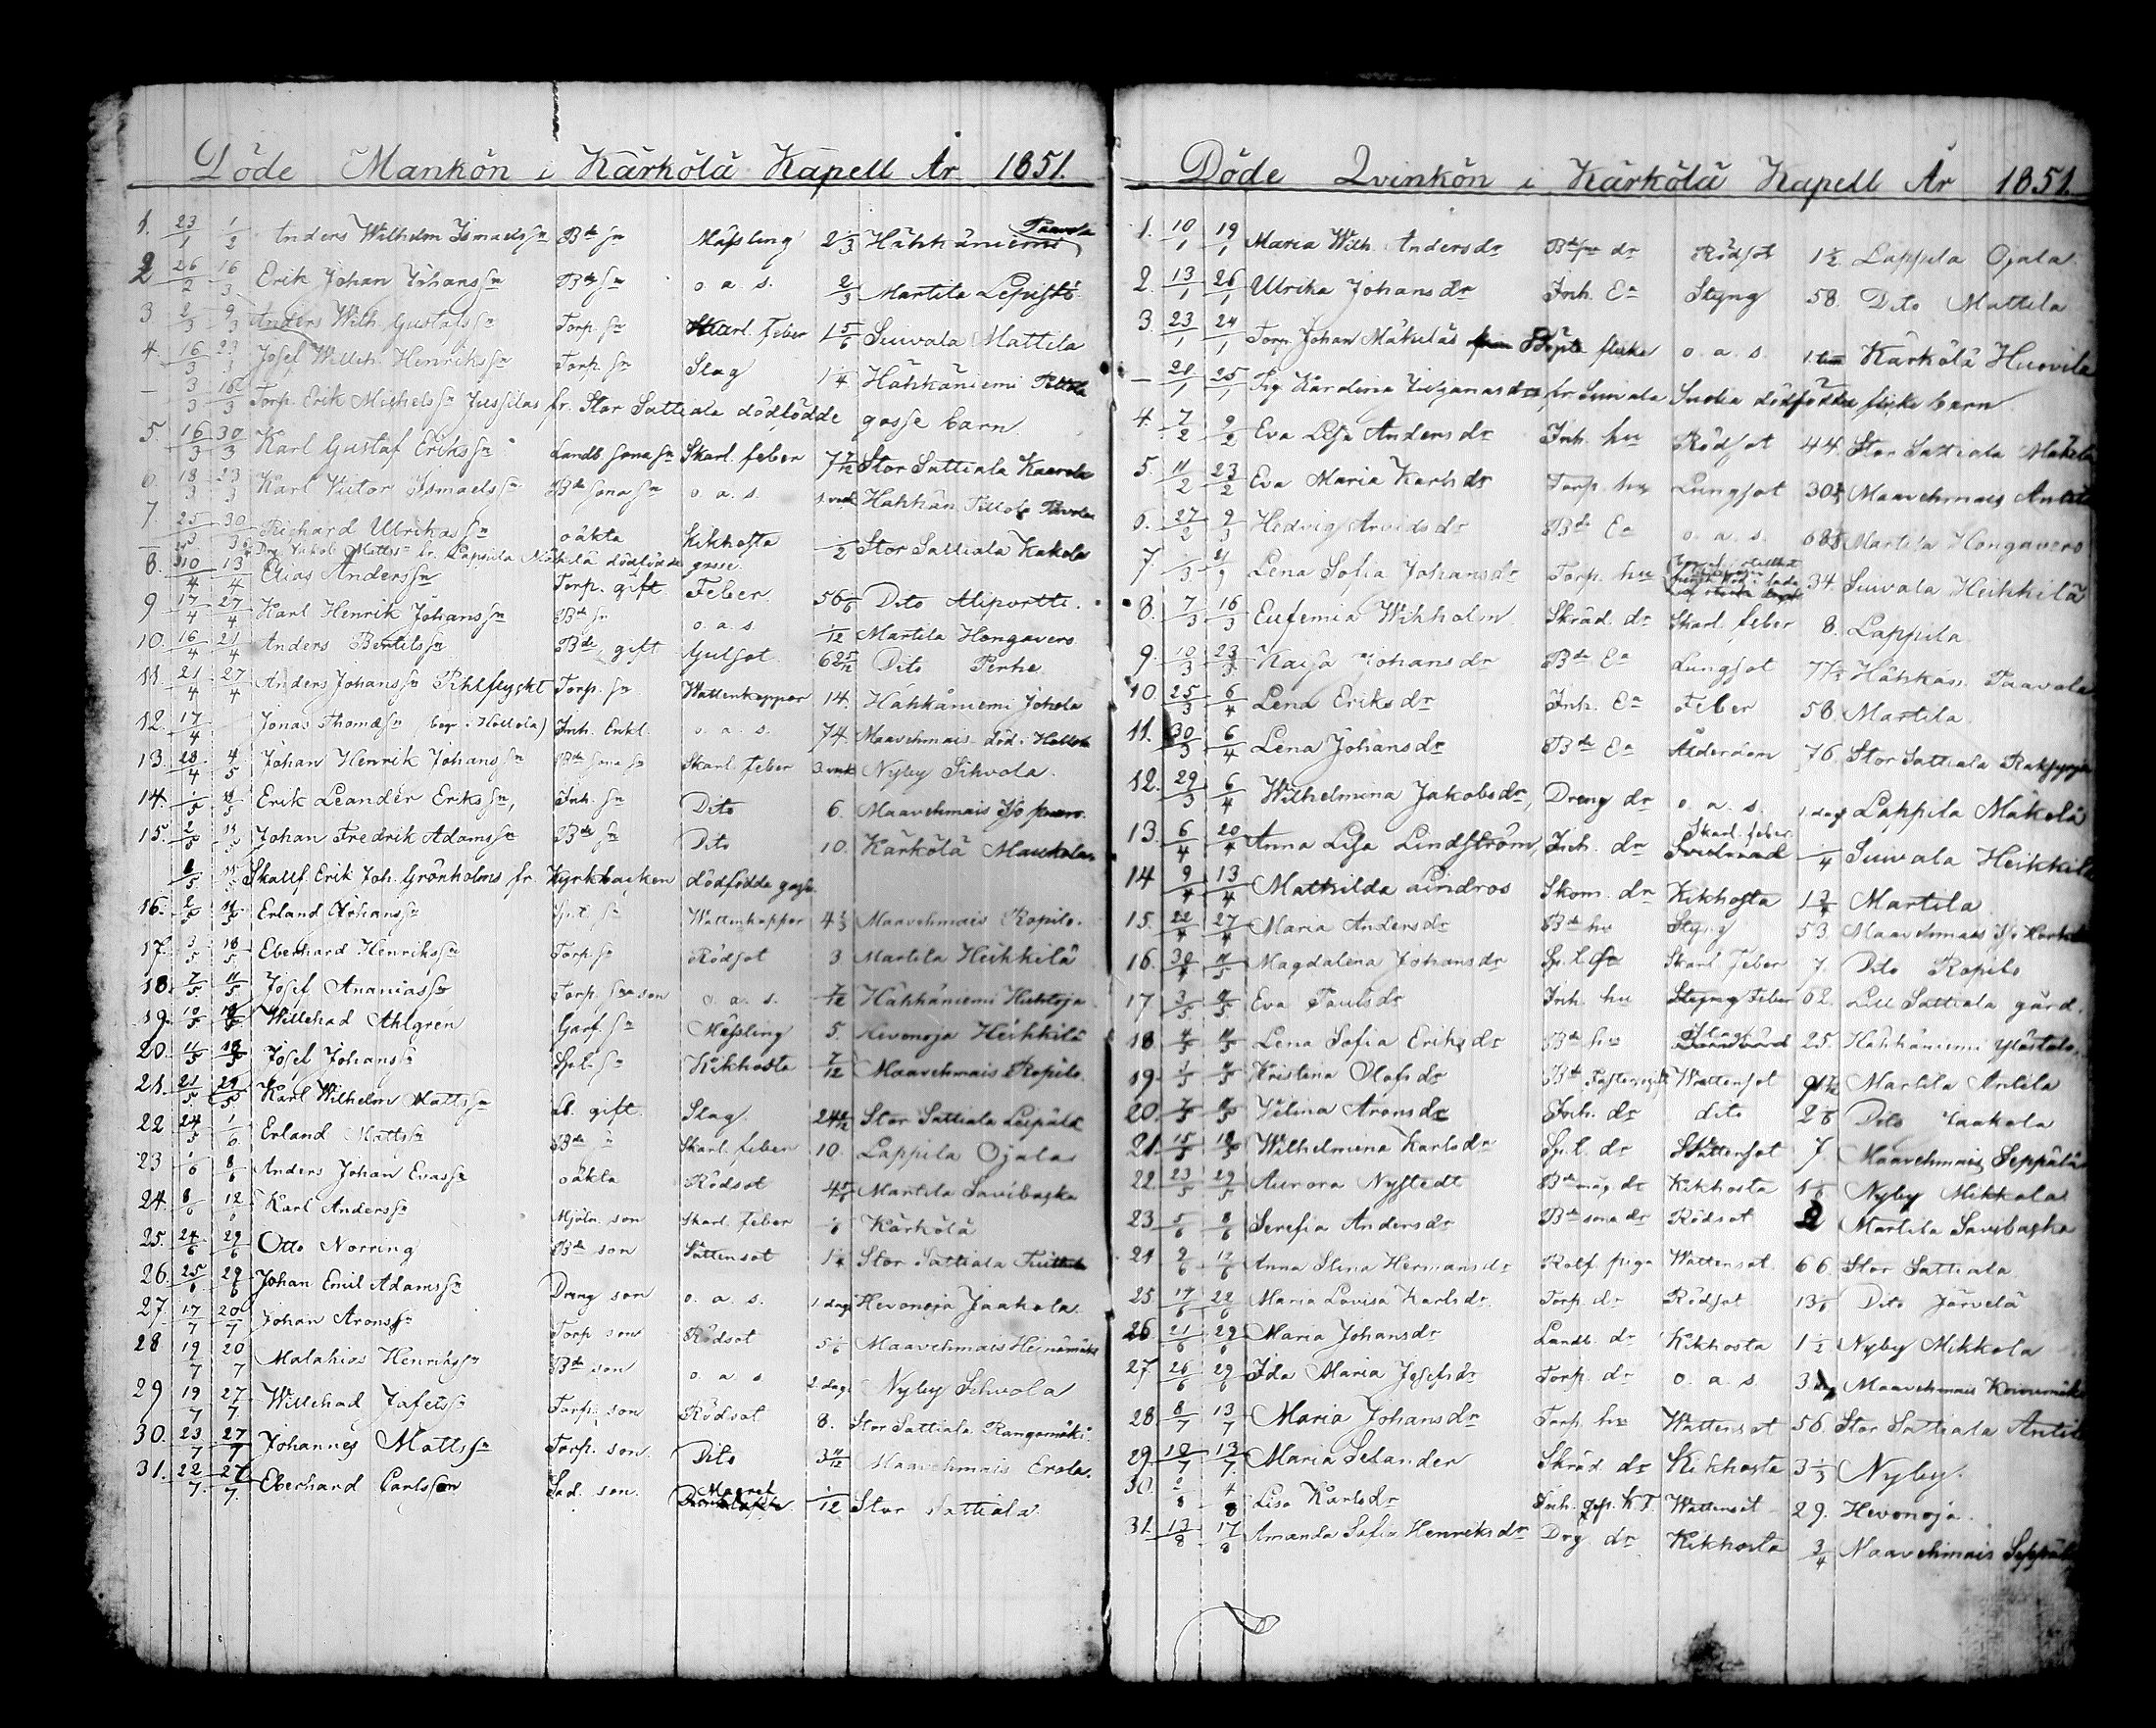 Döde Mankön i Kärkölä Kapell År 1851.
1. 23/1 1/2 Anders Wilhelm Ismaelsn Bde sn Mässling 2 1/3 Hähkäniemi Paavola
2 26/2 16/3 Erik Johan Johanssn Bde sn o. a. s. 2/3 Martila Lepistö
3 2/3 9/3 Anders Wilh. Gustafssn Torp. sn Skarl. feber 1 5/6 Suvvala Mattila
4. 16/3 23/3 Josef Willeh. Henrikssn Torp. sn Slag 1/4 Hähkäniemi
— 3/3 16/3 Torp. Erik Michelssn Jussilas fr. Stor Sattiala dödfödde gosse barn.
5. 16/3 30/3 Karl Gustaf Erikssn Landb. sona sn Skarl. feber 7 7/12 Stor Sattiala Kaavola
6. 18/3 23/3 Karl Victor Ismaelssn Bde sona sn o. a. s. Hähkän.
7. 25/3 30/3 Richard Ulrikassn oäkta Kikhosta 1/2 Stor Sattiala Kakola
Drg Jakob Mattssn fr. Lappila Mäkelä dödfödde gosse.
8. 10/4 13/4 Elias Anderssn Torp. gift Feber 56 Dito Aliportti.
9 17/4 27/4 Karl Henrik Johanssn Bde sn o. a. s. 1/12 Martila Hongavero
10. 16/4 21/4 Anders Bertilssn Bde, gift Gulsot 62 5/12 Dito Perhe
11. 21/4 27/4 Anders Johanssn Pihlflyckt Torp. sn Wattenkoppor 14. Hähkäniemi Johola
12. 17/4 Jonas Thomassn (begr. i Hollola) Inh. Enkl. o. a. s. 74. Maavehmais död i Hollola
13. 28/4 4/5 Johan Henrik Johanssn Bde sona sn Skarl. feber Nyby Sihvola.
14. 1/5 11/5 Erik Leander Erikssn, Inh. sn Dito 6. Maavehmais
15. 2/5 11/5 Johan Fredrik Adamssn Bde sn Dito 10. Kärkölä Maukola
Skallf Erik Joh. Grönholms fr. Kyrkbacken dödfödda gosse
16. 2/5 11/5 Erland Johanssn Spl. sn Wattenkoppor 4 1/2 Maavehmais Ropilo.
17. 3/5 18/5 Eberhard Henrikssn Torp. sn Rödsot 3 Martila Heikkilä
18. 7/5 11/5 Josef Ananiassn Torp. sona son o. a. s. 7/12 Hähkäniemi Huhtoja
19. 10/5 18/5 Willehad Ahlgren Garf. sn Mässling 5. Hevonoja Heikkilä
20. 11/5 18/5 Josef Johanssn Spl. sn Kikhosta 7/12 Maavehmais Ropilo.
21. 21/5 29/5 Karl Wilhelm Mattssn Lb. gift. Slag. 24 Stor Sattiala Leipälä
22 24/5 1/6 Erland Mattssn Bde sn Skarl. feber 10. Lappila Ojala
23 1/6 8/6 Anders Johan Evassn oäkta Rödsot 4 5/6 Martila Savibacka
24. 8/6 12/6 Karl Anderssn Mjöln. son Skarl. feber 1/6 Kärkölä
25. 24/6 29/6 Otto Norring Bde son Sättensot 1/4 Stor Sattiala
26. 25/6 29/6 Johan Emil Adamssn Dreng son o. a. s. 1 dag Hevonoja Jaakola
27. 17/7 20/7 Johan Aronssn Torp. son Rödsot 5 1/6 Maavehmais Heinämäki
28 19/7 20/7 Malakias Henrikssn Bde son o. a. s 2 dag. Nyby Sihvola
29 19/7 27/7 Willehad Jafetssn Torp. son Rödsot 8. Stor Sattiala Rangomäki
30. 23/7 27/7 Johannes Mattssn Torp. son. Dito 3 11/12 Maavehmais Erola.
31. 22/7 27/7 Eberhard Carlsson Sad. son. Magret 1/12 Stor Sattiala.
Döde Qvinkön i Kärkölä Kapell År 1851.
1. 10/1 19/1 Maria Wilh. Andersdr dr Rödsot 1 1/2 Lappila Ojala.
2. 13/1 26/1 Ulrika Johansdr Inh. Ea Styng 58. Dito Mattila
3. 23/1 24/1 Torp. Johan Mäkeläs döpte flicka o. a. s. Kärkölä Huovila
— 21/1 25/1 Pig. Karolina fr. Suvvala dödfödda flicke barn
4. 7/2 9/2 Eva Lisa Andersdr Inh. hu Rödsot 44. Stor Sattiala Mäkelä
5. 11/2 23/2 Eva Maria Karlsdr Torp. hu Lungsot 30 Maavehmais Anttila
6. 27/2 9/3 Hedvig Arvidsdr Bde Ea o. a. s. 68 Martila Hongavero
7. Lena Sofia Johansdr Torp. hu 34. Suvvala Heikkilä
8. 7/3 16/3 Eufemia Wihholm Skräd. dr Skarl. feber 8. Lappila
9. 10/3 23/3 Kaisa Johansdr Bde Ea Lungsot 77 Hähkän. Paavola
10. 25/3 6/4 Lena Eriksdr Inh. Ea Feber 58. Martila.
11. 30/3 6/4 Lena Johansdr Bde Ea Ålderdom 76. Stor Sattiala
12. 29/3 6/4 Wilhelmina Jakobsdr, Dreng dr o. a. s. 1 dag Lappila Mäkelä
13. 6/4 20/4 Anna Lisa Lindström, Inh. dr Skarl. feber 1/4 Suvvala Heikkilä
14 9/4 13/4 Mathilda Lindros Skom. dr Kikhosta 1 3/4 Martila
15. 22/4 27/4 Maria Andersdr Bde hu Styng 53. Maavehmais
16. 30/4 11/5 Magdalena Johansdr Skarl. feber 7. Dito Ropilo
17 3/5 11/5 Eva Paulsdr Inh. hu Feber 62. Lill Sattiala gård.
18 4/5 11/5 Lena Sofia Eriksdr Bde hu 25. Hähkäniemi Ylöstalo.
19. 1/5 11/5 Kristina Olofsdr Wattensot Martila Antila
20. 7/5 11/5 Velina Aronsdr Inh. dr dito 2 1/6 Dito Jaakola
21. 15/5 18/5 Wilhelmina Karlsdr Spl. dr Wattensot 7. Maavehmais Seppälä
22 23/5 29/5 Aurora Nystedt Bde måg dr Kikhosta 1 1/6 Nyby Mikkola
23. 5/6 8/6 Serefia Andersdr Bde sona dr Rödsot Martila Savibacka
24 2/6 12/6 Anna Stina Hermansdr piga Wattensot. 66. Stor Sattiala
25 17/6 22/6 Maria Lovisa Karlsdr Torp. dr Rödsot 13 1/6 Dito Järvelä
26. 21/6 29/6 Maria Johansdr Landb. dr Kikhosta 1 1/2 Nyby Mikkola
27. 26/6 29/6 Ida Maria Josefsdr Torp. dr o. a. s. 3 Maavehmais Koivumäki
28. 8/7 13/7 Maria Johansdr Torp. hu Wattensot 56. Stor Sattiala Antila
29 10/7 13/7 Maria Selander Skräd. dr Kikhosta 3 1/3 Nyby.
30. 2/8 4/8 Lisa Karlsdr Inh. Wattensot 29. Hevonoja.
31. 13/8 17/8 Amanda Sofia Henriksdr Drg dr Kikhosta 3/4 Maavehmais Seppälä